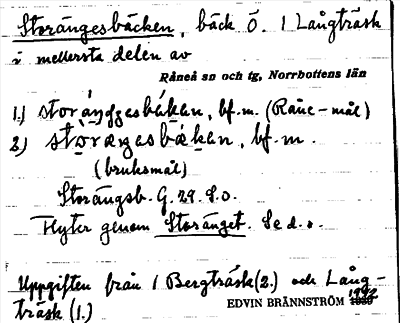 Storängesbäcken, bäck Ö. i Långträsk
i mellersta delen av
Råneå sn och tg, Norrbottens län
1.) storáŋgesbäken, bf.m. (Råne-mål)
2) storæŋesbäken, bf.m.
(bruksmål)
Storängsb. G. 29. S.O.
Flyter genom Storänget. Se d.o.
Uppgiften från 1 Bergträsk (2.) och Lång-
träsk (1.)
EDVIN BRÄNNSTRÖM 1942